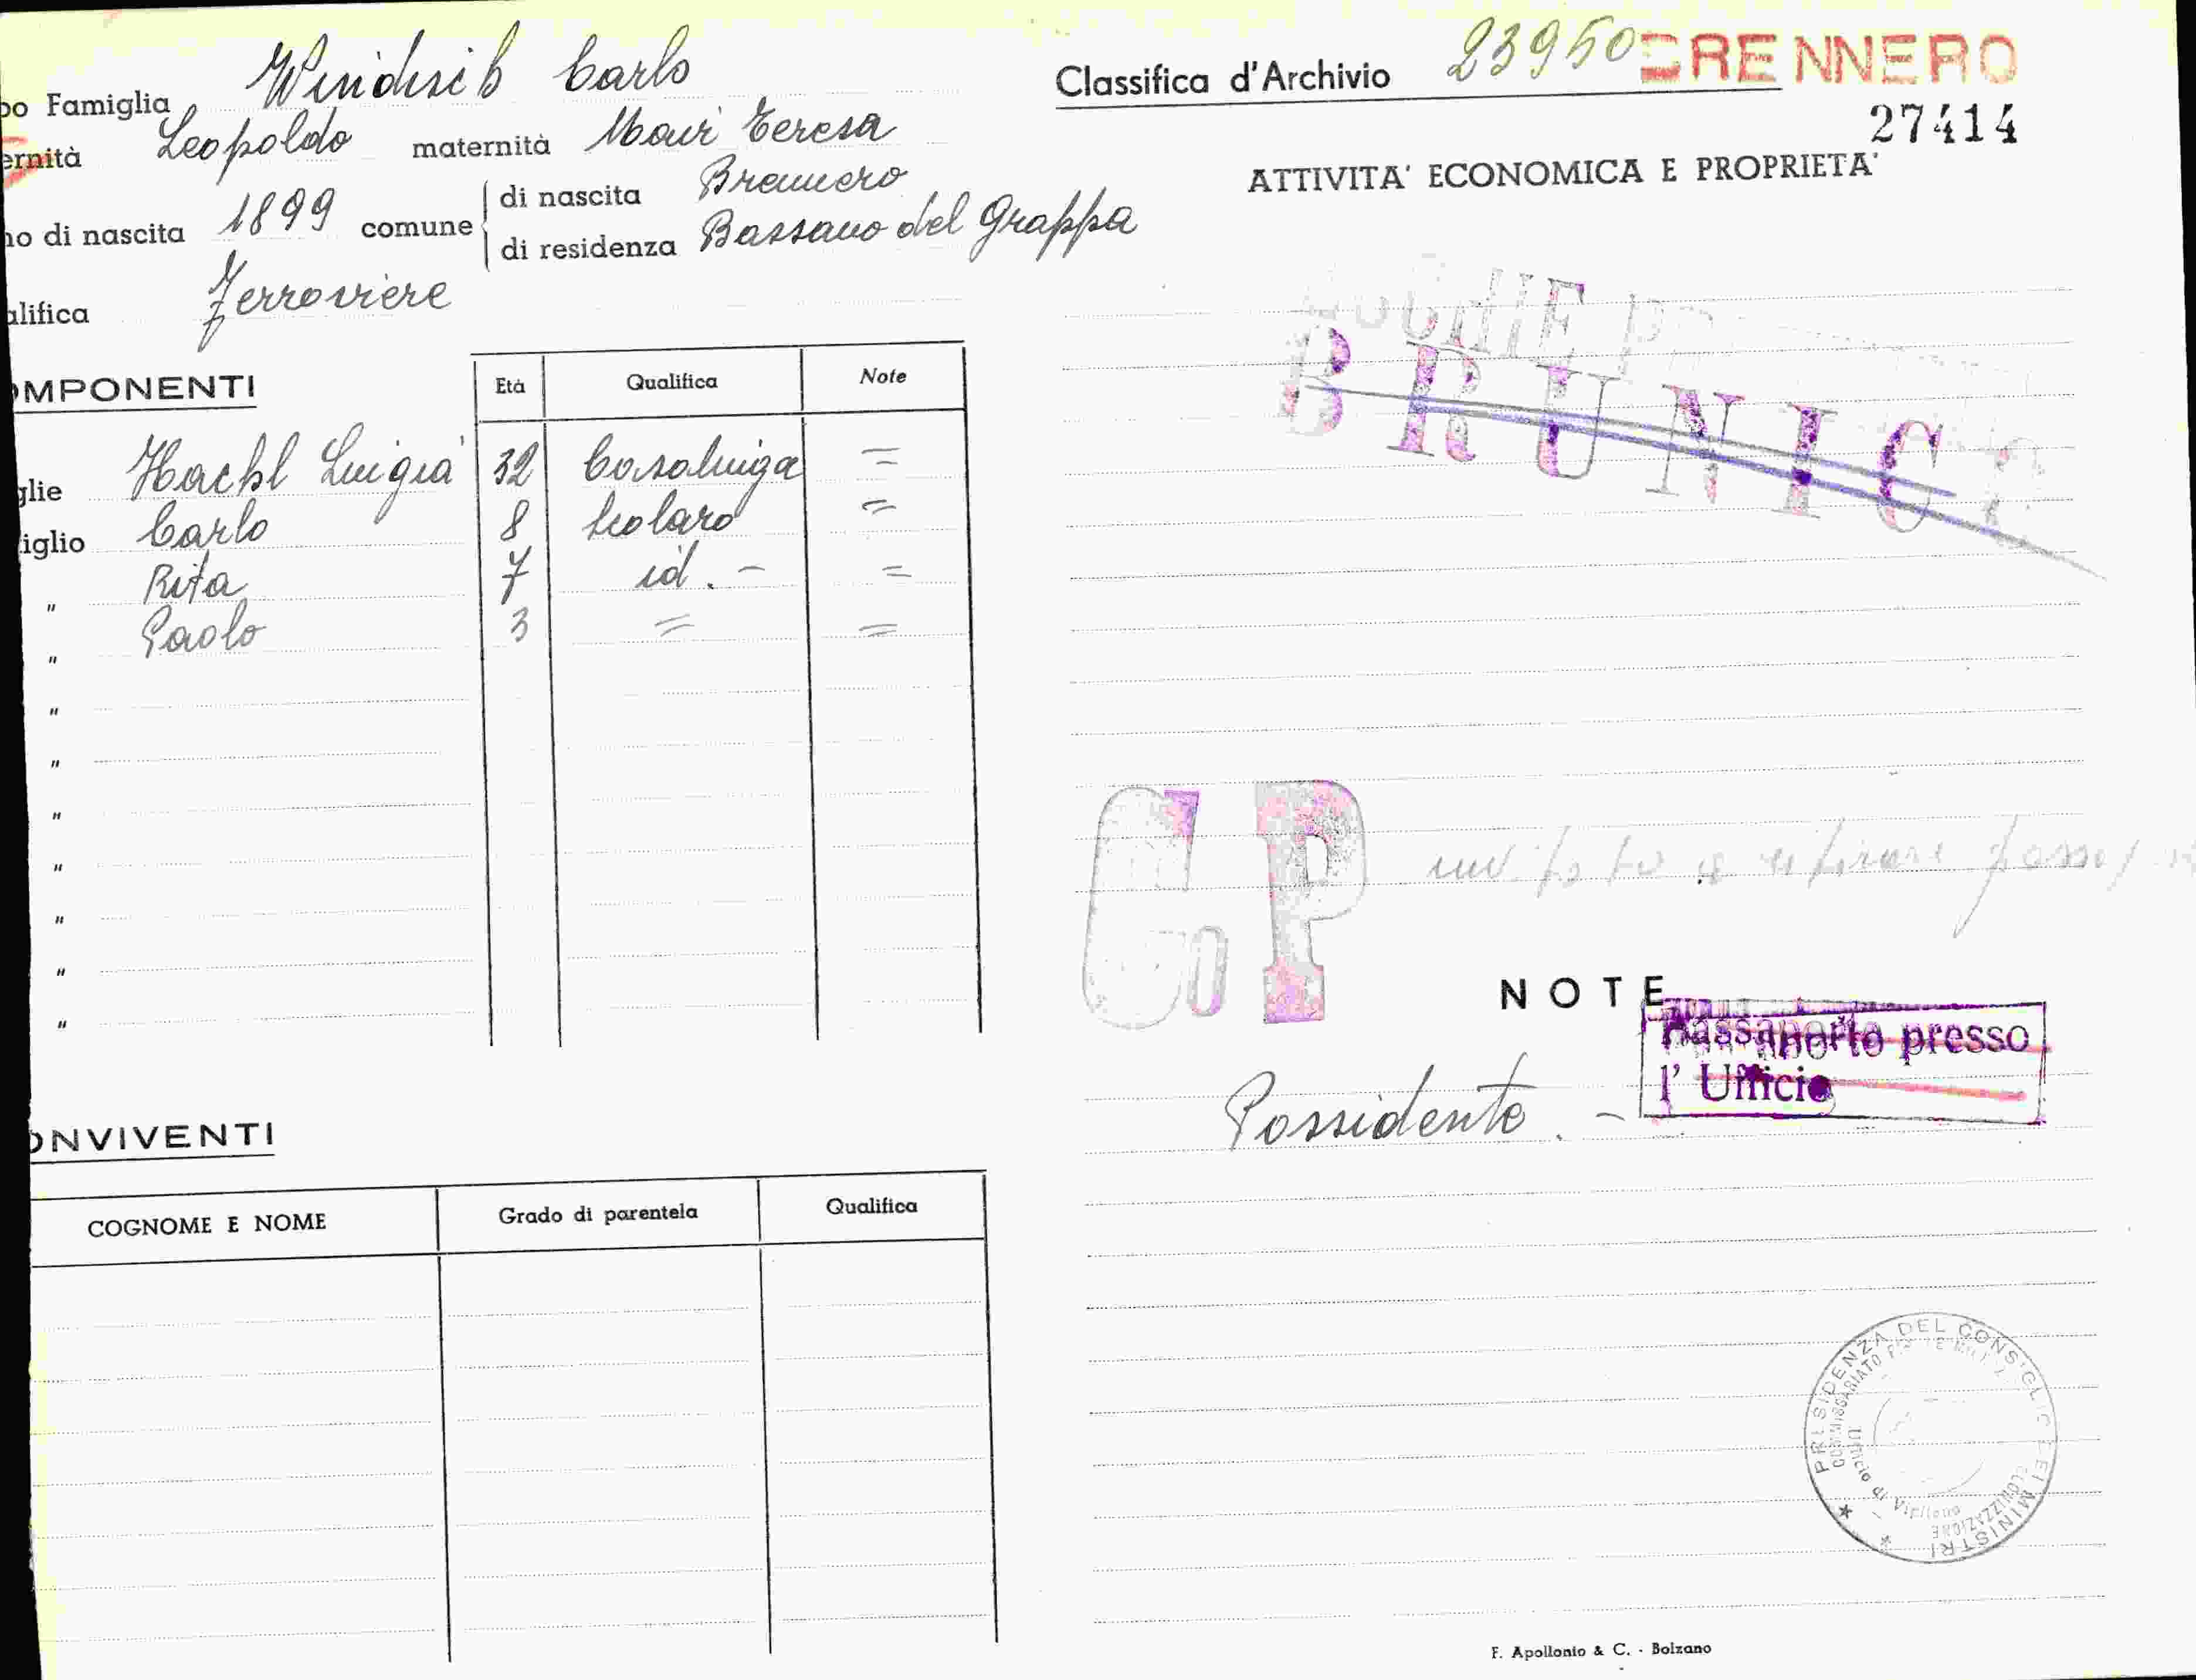 po Famiglia Windisch Carlo
ernità Leopoldo maternità Mair Teresa
no di nascita 1899 comune di nascita Brennero
di residenza Bassano del Grappa
alifica Ferroviere
OMPONENTI Età Qualifica Note
glie Hackl Luigia 32 Casalinga =
iglio Carlo 8 Scolaro =
" Rita 7 id. - =
" Paolo 3 = =
"
"
"
"
"
"
"
ONVIVENTI
COGNOME E NOME Grado di parentela Qualifica
Classifica d'Archivio 23950 BRENNERO
27414
ATTIVITA' ECONOMICA E PROPRIETA'
BRUNICO
G P
invitato a ritirare
NOTE
Passaporto presso
l' Ufficio
Possidente. -
PRESIDENZA DEL CONSIGLIO DEI MINISTRI
COMMISSARIATO
COLONIZZAZIONE
Ufficio di Vipiteno
F. Apollonio & C. - Bolzano